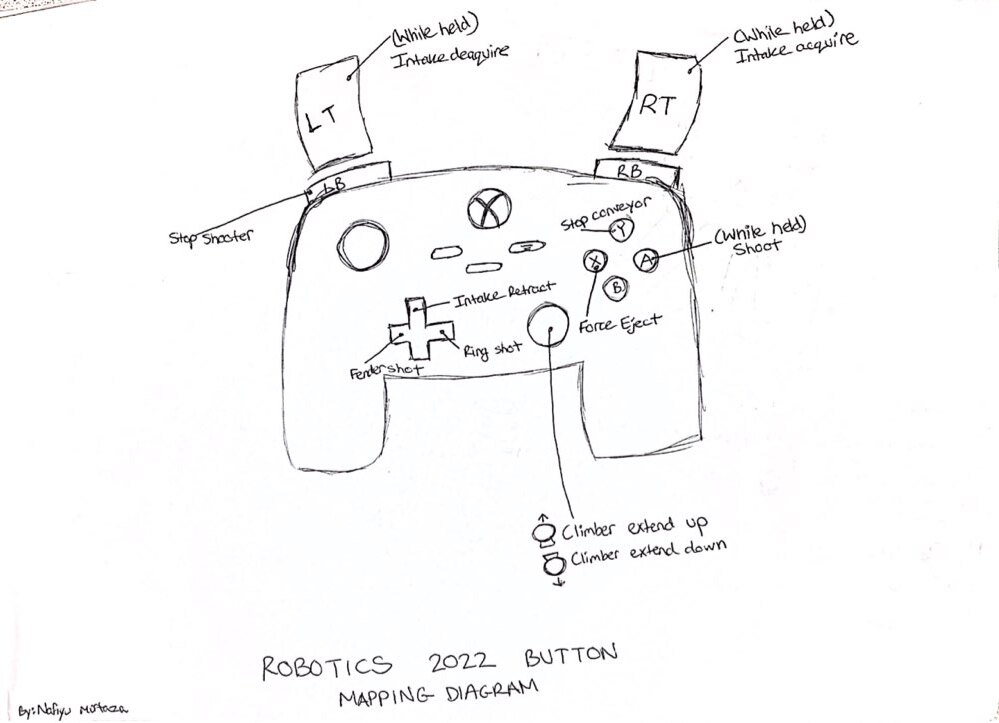 (While held)
Intake deaquire
(While held)
Intake acquire
LT
RT
LB
RB
Stop Shooter
X
Stop conveyor
Y
(While held)
Shoot
X
A
B
Intake Retract
Force Eject
Ring shot
Fender shot
Climber extend up
Climber extend down
ROBOTICS 2022 BUTTON
MAPPING DIAGRAM
By: Nafiyu